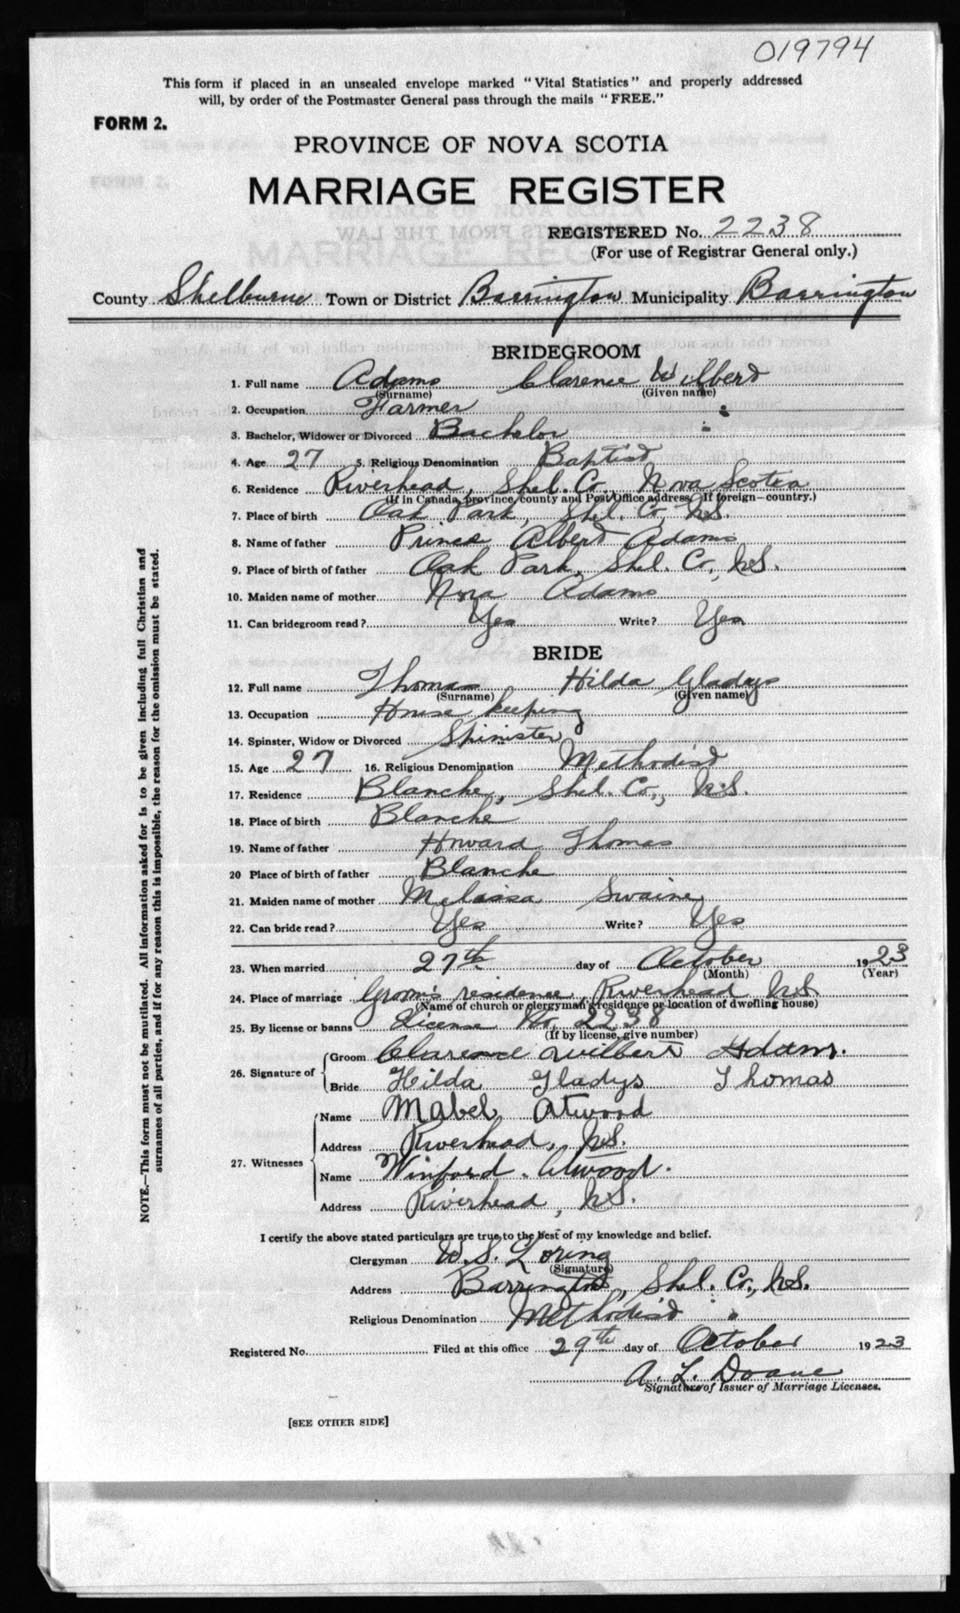 019794
This form if placed in an unsealed envelope marked "Vital Statistics" and properly addressed
will, by order of the Postmaster General pass through the mails "FREE."
FORM 2.
PROVINCE OF NOVA SCOTIA
MARRIAGE REGISTER
REGISTERED No. 2238
(For use of Registrar General only.)
County Shelburne Town or District Barrington Municipality Barrington
BRIDEGROOM
1. Full name Adams Clarence Wilbert
(Surname) (Given name)
2. Occupation Farmer
3. Bachelor, Widower or Divorced Bachelor
4. Age 27 5. Religious Denomination Baptist
6. Residence Riverhead, Shel. Co., Nova Scotia
(If in Canada, province, county and Post Office address. If foreign—country.)
7. Place of birth Oak Park, Shel. Co., N.S.
8. Name of father Prince Albert Adams
9. Place of birth of father Oak Park, Shel. Co., N.S.
10. Maiden name of mother Nora Adams
11. Can bridegroom read? Yes Write? Yes
BRIDE
12. Full name Thomas Hilda Gladys
(Surname) (Given name)
13. Occupation House keeping
14. Spinster, Widow or Divorced Spinister
15. Age 27 16. Religious Denomination Methodist
17. Residence Blanche, Shel. Co., N.S.
18. Place of birth Blanche
19. Name of father Howard Thomas
20 Place of birth of father Blanche
21. Maiden name of mother Melissa Swaine
22. Can bride read? Yes Write? Yes
23. When married 27th day of October 1923
(Month) (Year)
24. Place of marriage Groom's residence, Riverhead N.S.
(Name of church or clergyman's residence or location of dwelling house)
25. By license or banns License No. 2238
(If by license, give number)
26. Signature of
Groom Clarence Wilbert Adams.
Bride Hilda Gladys Thomas
27. Witnesses
Name Mabel Atwood
Address Riverhead, N.S.
Name Winford Atwood.
Address Riverhead, N.S.
I certify the above stated particulars are true to the best of my knowledge and belief.
Clergyman W. S. Loring
(Signature)
Address Barrington, Shel. Co., N.S.
Religious Denomination Methodist
Registered No. Filed at this office 29th day of October 1923
A. L. Doane
Signature of Issuer of Marriage Licenses.
[SEE OTHER SIDE]
NOTE.—This form must not be mutilated. All information asked for is to be given including full Christian and
surnames of all parties, and if for any reason this is impossible, the reason for the omission must be stated.